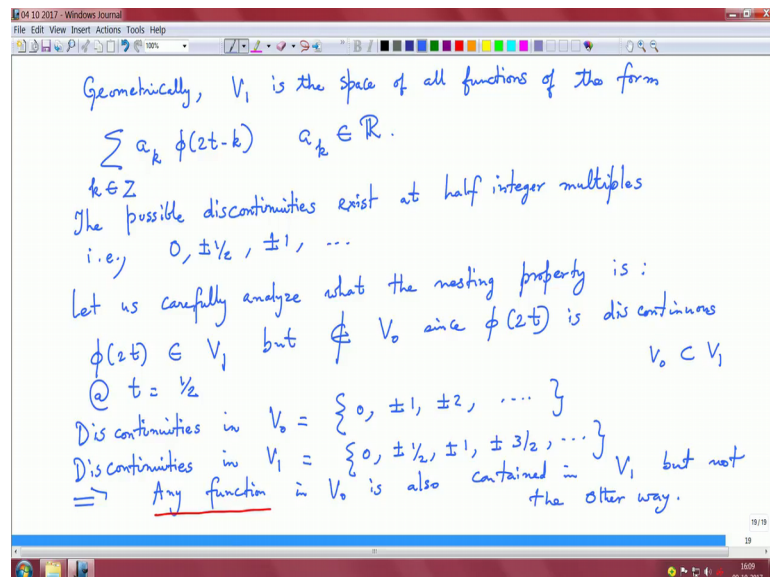 04 10 2017 - Windows Journal
File Edit View Insert Actions Tools Help
100%
Geometrically, V₁ is the space of all functions of the form
∑ a_k ϕ(2t-k) a_k ∈ ℝ.
k ∈ Z
The possible discontinuities exist at half integer multiples
i.e., 0, ±½, ±1, ...
Let us carefully analyze what the nesting property is :
ϕ(2t) ∈ V₁ but ∉ V₀ since ϕ(2t) is discontinuous
@ t = ½ V₀ ⊂ V₁
Discontinuities in V₀ = {0, ±1, ±2, ....}
Discontinuities in V₁ = {0, ±½, ±1, ±3/2, ...}
⇒ Any function in V₀ is also contained in V₁ but not
the other way.
19/19
19
16:09